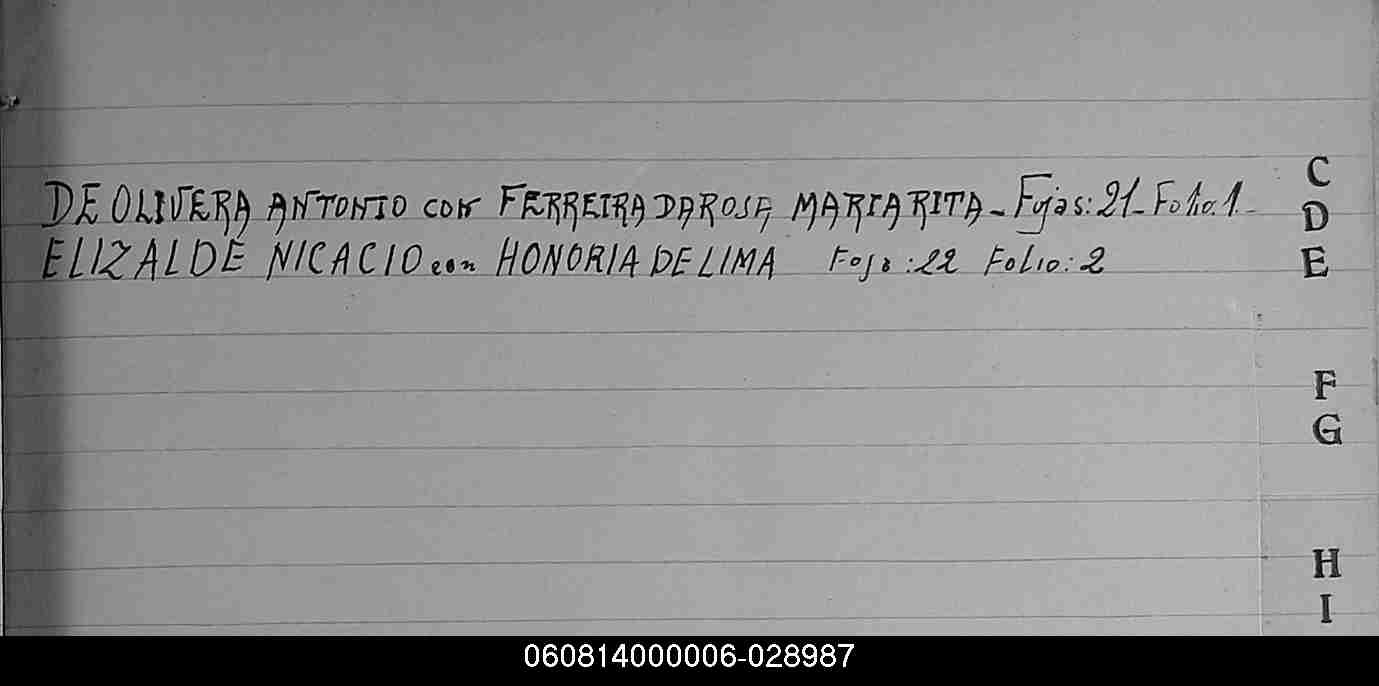 DE OLIVERA ANTONIO con FERREIRA DA ROSA MARIA RITA - Fojas: 21 - Folio. 1 -
ELIZALDE NICACIO con HONORIA DE LIMA Foja: 22 Folio: 2
C
D
E
F
G
H
I
060814000006-028987